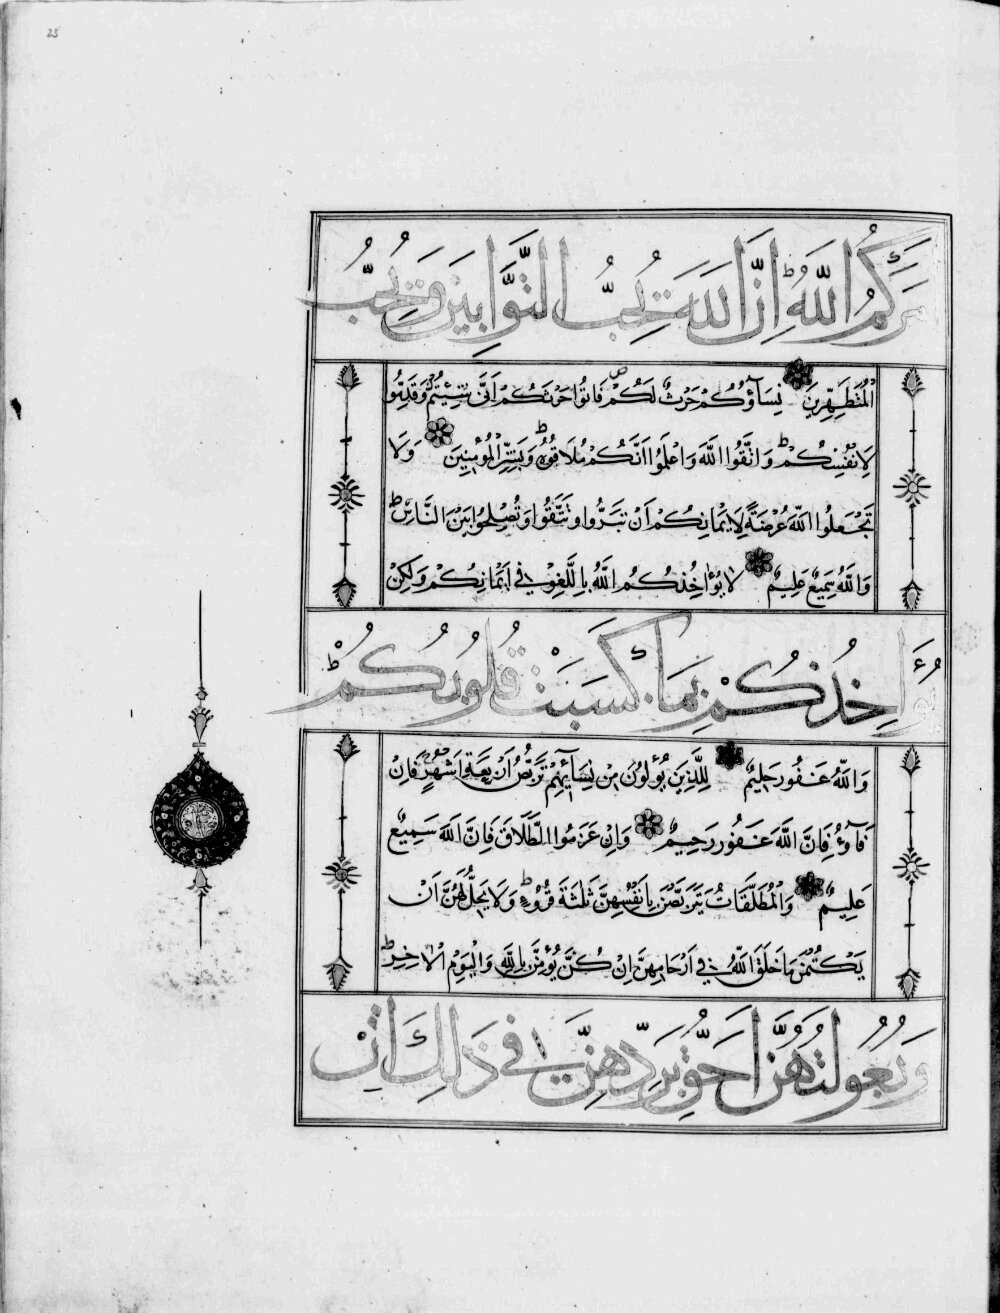 23
مَرَكُمُ اللّٰهُ ط اِنَّ اللّٰهَ يُحِبُّ التَّوَّابِيْنَ وَيُحِبُّ
الْمُتَطَهِّرِيْنَ نِسَآؤُكُمْ حَرْثٌ لَكُمْ ص فَاتُوْا حَرْثَكُمْ اَنّٰى شِئْتُمْ وَقَدِّمُوْا
لِاَنْفُسِكُمْ ط وَاتَّقُوا اللّٰهَ وَاعْلَمُوْا اَنَّكُمْ مُلَاقُوْهُ ط وَبَشِّرِ الْمُؤْمِنِيْنَ وَلَا
تَجْعَلُوا اللّٰهَ عُرْضَةً لِاَيْمَانِكُمْ اَنْ تَبَرُّوْا وَتَتَّقُوْا وَتُصْلِحُوْا بَيْنَ النَّاسِ ط
وَاللّٰهُ سَمِيْعٌ عَلِيْمٌ لَا يُؤَاخِذُكُمُ اللّٰهُ بِاللَّغْوِ فِيْ اَيْمَانِكُمْ وَلٰكِنْ
يُؤَاخِذُكُمْ بِمَا كَسَبَتْ قُلُوْبُكُمْ ط
وَاللّٰهُ غَفُوْرٌ حَلِيْمٌ لِلَّذِيْنَ يُؤْلُوْنَ مِنْ نِسَآئِهِمْ تَرَبُّصُ اَرْبَعَةِ اَشْهُرٍ فَاِنْ
فَآؤُ فَاِنَّ اللّٰهَ غَفُوْرٌ رَحِيْمٌ وَاِنْ عَزَمُوا الطَّلَاقَ فَاِنَّ اللّٰهَ سَمِيْعٌ
عَلِيْمٌ وَالْمُطَلَّقَاتُ يَتَرَبَّصْنَ بِاَنْفُسِهِنَّ ثَلٰثَةَ قُرُوْءٍ ط وَلَا يَحِلُّ لَهُنَّ اَنْ
يَكْتُمْنَ مَا خَلَقَ اللّٰهُ فِيْ اَرْحَامِهِنَّ اِنْ كُنَّ يُؤْمِنَّ بِاللّٰهِ وَالْيَوْمِ الْاٰخِرِ ط
وَبُعُوْلَتُهُنَّ اَحَقُّ بِرَدِّهِنَّ فِيْ ذٰلِكَ اِنْ